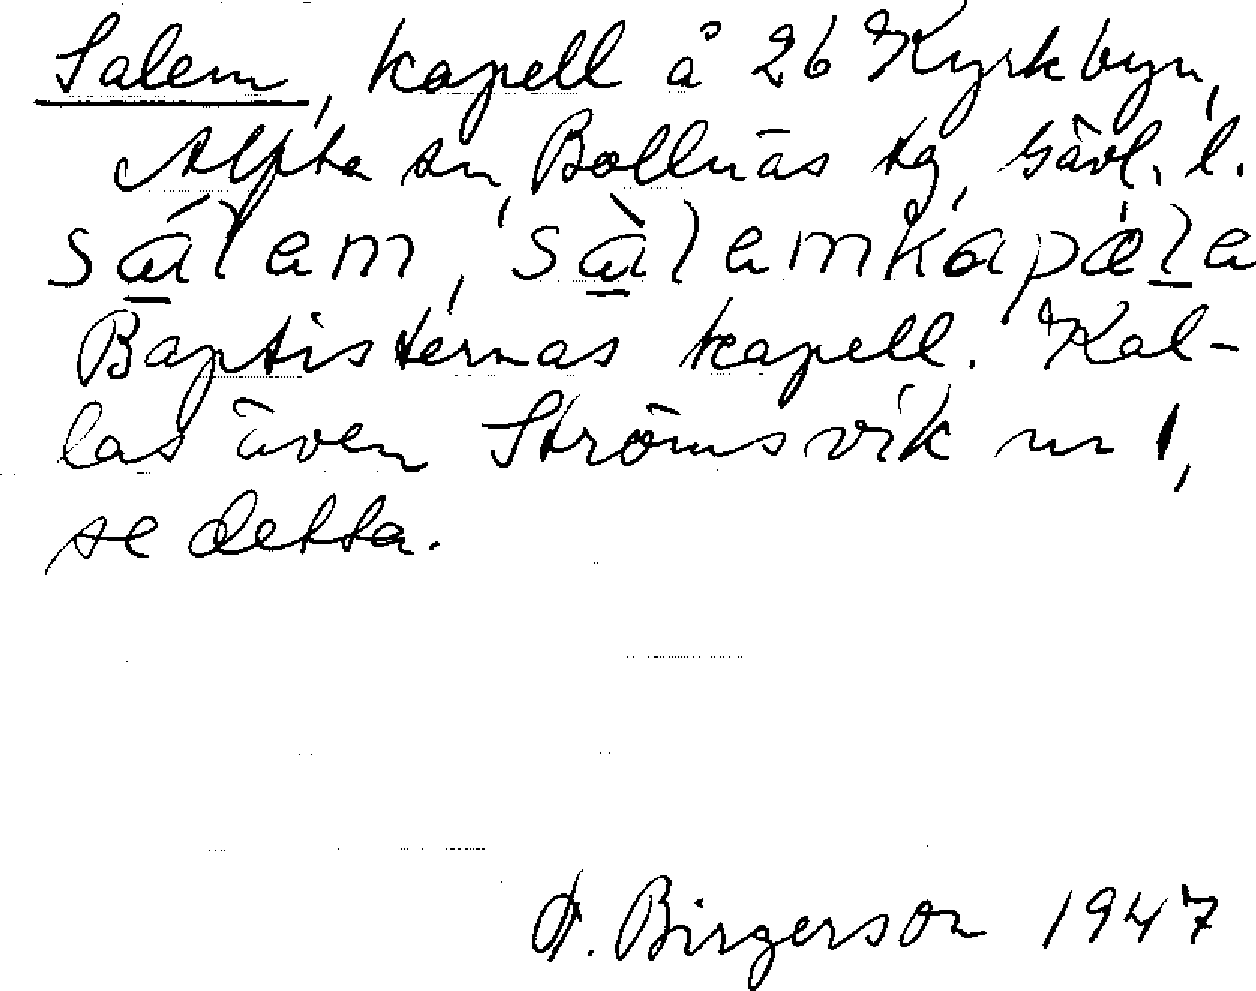 Salem, kapell å 26 Kyrkbyn,
Alfta sn, Bollnäs tg, Gävl. l.
sálem, sàlemkapæla
Baptisternas kapell. Kal-
las även Strömsvik nr 1,
se detta.
A. Birgerson 1947